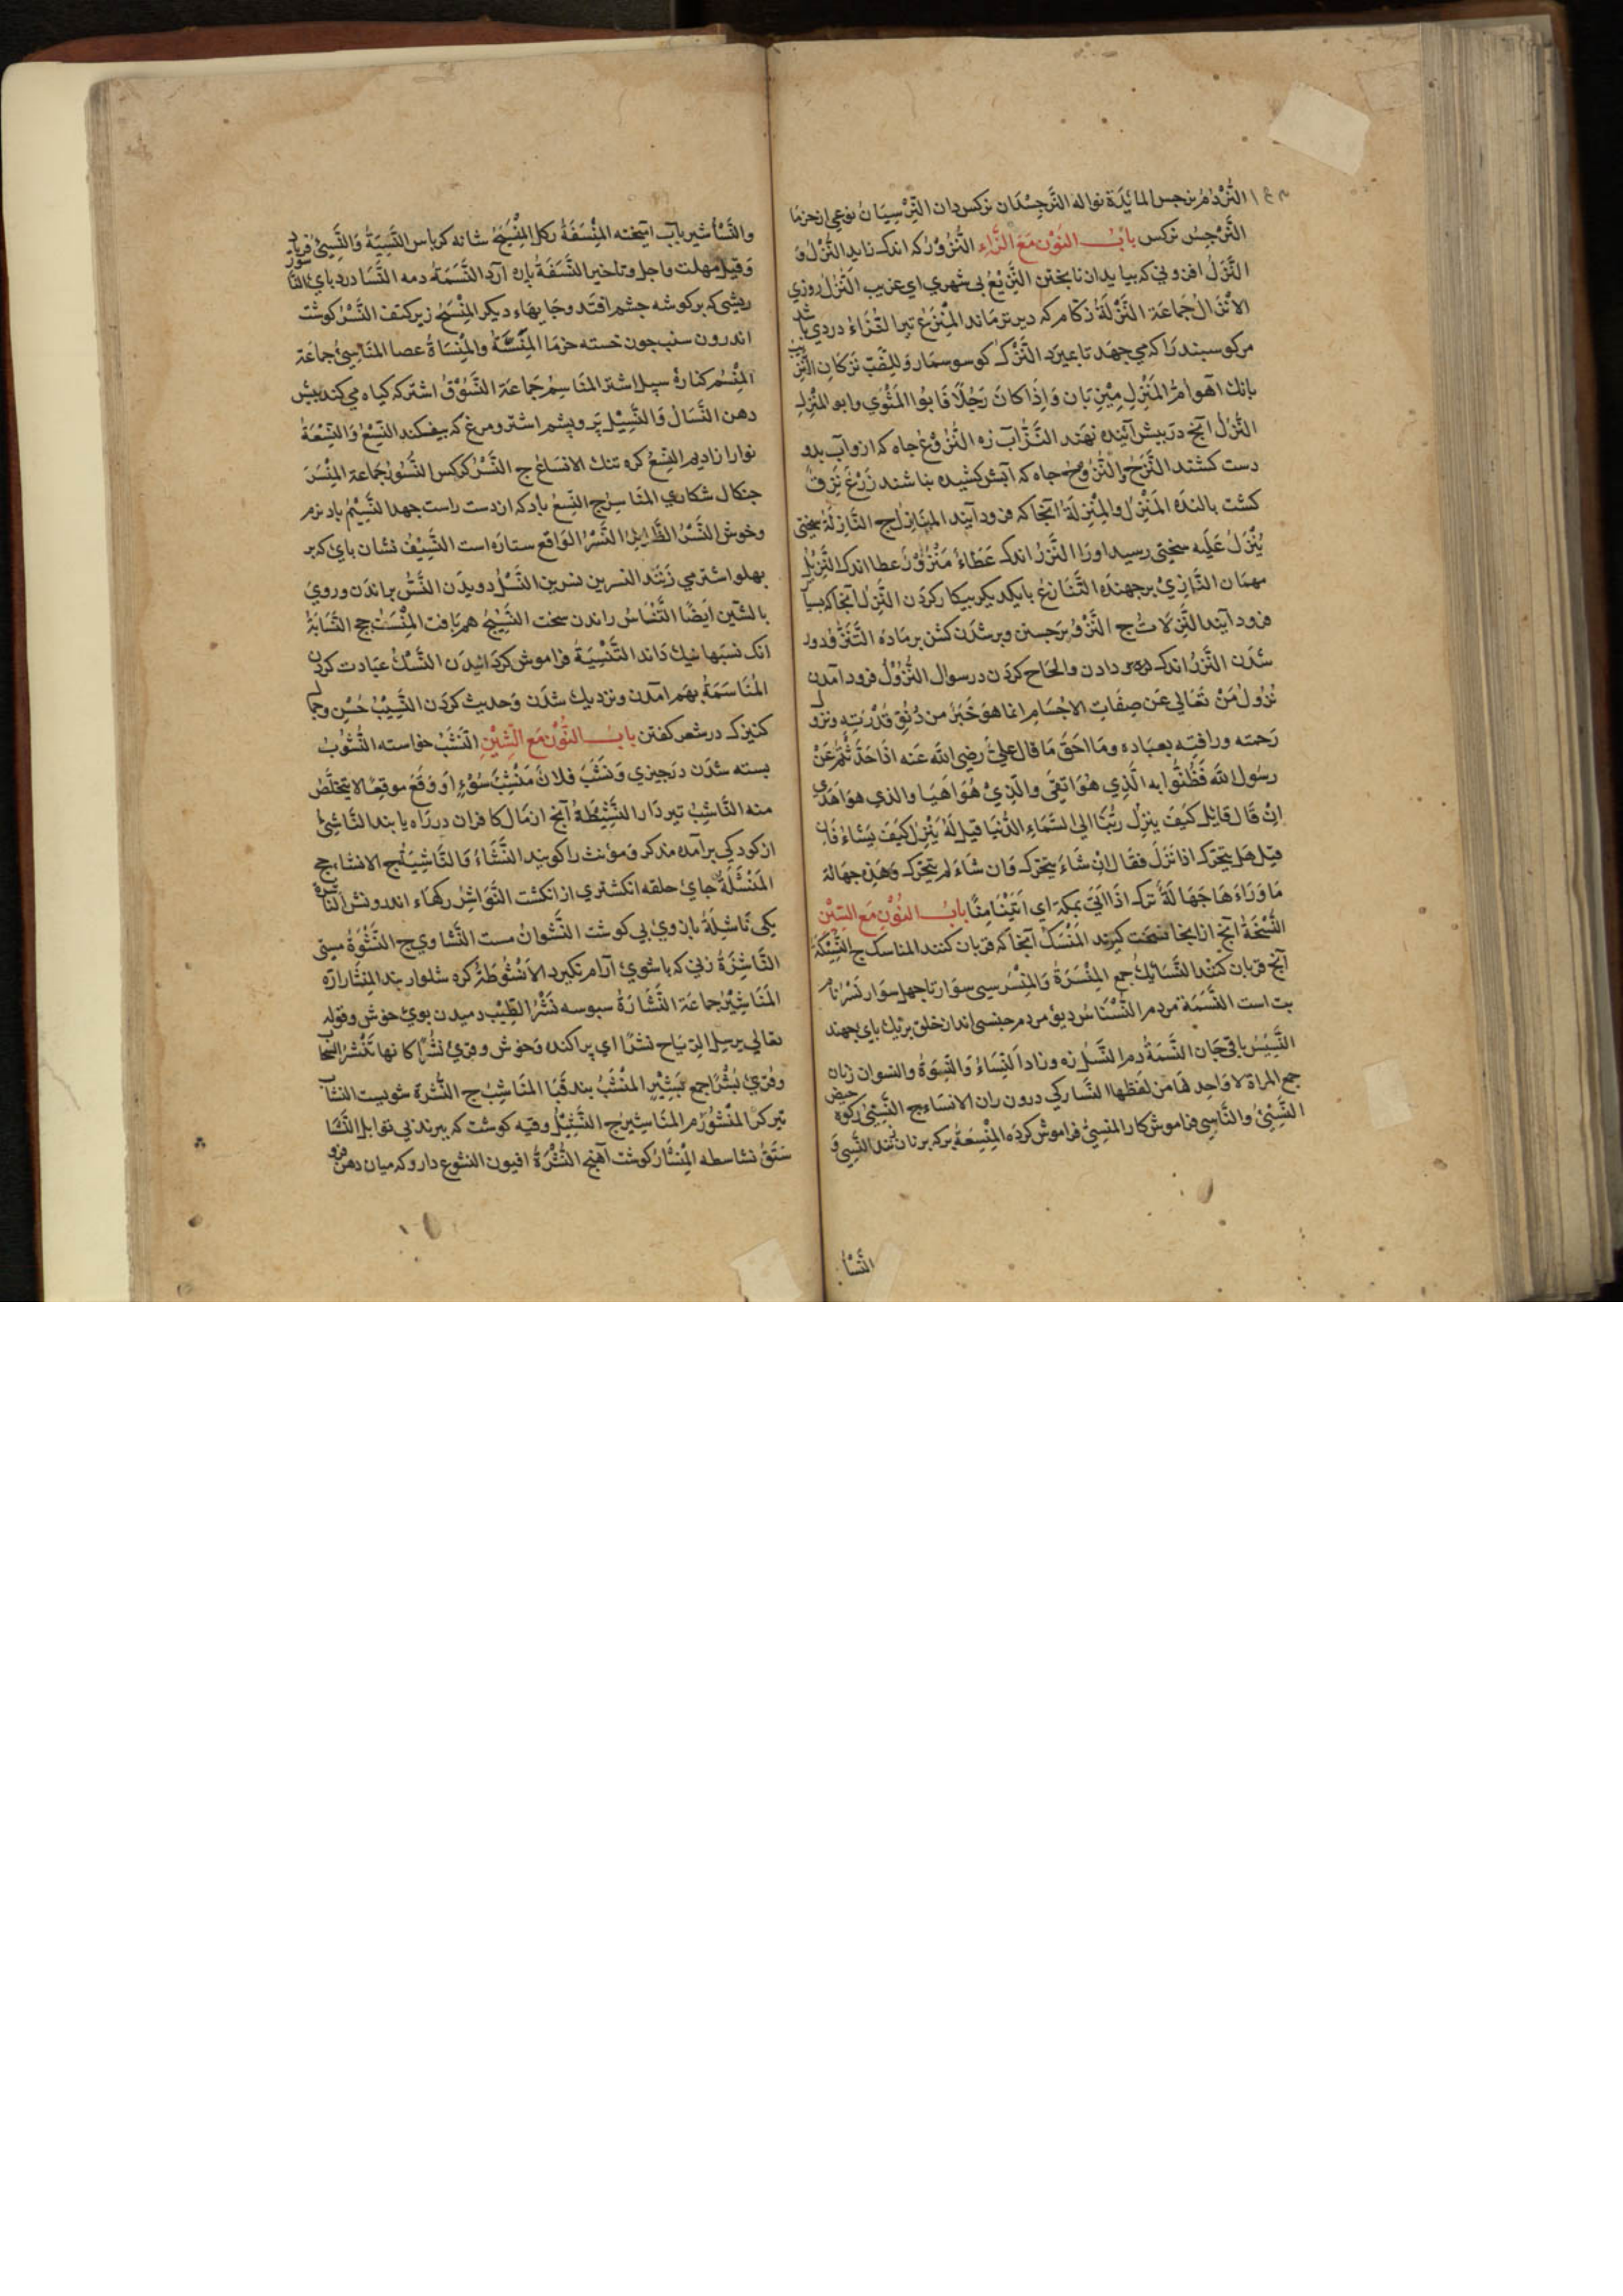 النرد امر نرجس المائدة نواله النرجسدان نركس دان النرسيان نوعی از خرما
النرجس نركس باب النون مع الزاء النزور كه اندك زايد النزل و
النزل افزونی كه بيايد از نا پختن النزيع بی شهری ای غريب النزل روزی
الانزال جماعة النزلة زكام كه ديرتر ماند المنزع تير النزاء دردی باشد
مر كوسبند را كه می جهد تا بميرد النزك كوسوسمار وللضب نزكان النزيب
بانك آهو ام المنزل ميزبان واذا كان رجلا فابو المثوی وابو المنزل
النزل آنچ در پيش آينده نهند النز آب زه النزوع جاه كه ازو آب بدو
دست كشند النزح والنزوح جاه كه آبش كشيده باشند زرع نزف
كشت بالنده المنزل والمنزلة آنجا كه فرود آيند المنازل ج النازلة سختی
ينزل عليه سختی رسيد اورا النزر اندك عطاء منزور عطا اندك النزيل
مهمان النازی برجهنده التنازع بايكديكر بيكار كردن النزل آنجا كه بسيار
فرود آيند النزلات ج النزو برجستن وبر شدن كشن بر ماده التنزف دور
شدن النزر اندك دادن والحاح كردن در سوال النزول فرود آمدن
نزول من تعالی عن صفات الاجسام انما هو خبر من دنو قدرته ونزول
رحمته ورافته بعباده وما احق ما قال علی رضی الله عنه اذا حدثتم عن
رسول الله فظنوا به الذی هو اتقی والذی هو اهيا والذی هو اهدی
ان قال قائل كيف ينزل ربنا الی السماء الدنيا قيل له ينزل كيف يشاء فان
قيل هل يتحرك اذا نزل فقال ان شاء يتحرك وان شاء لم يتحرك وهذه جهالة
ما وراءها جهالة ترك اذا اتی بمكة ای اتينا منا باب النون مع السين
النسخة آنچ از آنجا نسخت كيرند المنسك آنجا كه قربان كنند المناسك ج النسيكة
آنچ قربان كنند النسائك جمع المنسرة والمنسر سی سوار تا چهل سوار نسر نام
بت است النسمة مردم النسناس ديو مردم جنسی اند از خلق بر يك بای بجهند
النسيس باقی جان النسمة دم النسل زه وزاد النساء والنسوة والنسوان زنان
جمع المراة لا واحد لها من لفظها النسا ركی درون ران الانساء ج النسی ركوه حيض
النسئ والناسی فراموش كار المنسی فراموش كرده المنسغة بركه بر نان زنند النسئ و
النسأ
والنسأ شير باب آميخته المنسفة ركل المنسج شانه كرباس النسيئة والنسئ فرياد
وقيل مهلت واجل وتاخير النسفة بان آرد النسمة دمه النسا درد بای النا سور
ريشی كه بر كوشه چشم افتد وجايهاء ديكر المنسج زير كتف النسر كوشت
اندرون سنب چون خسته خرما المنسأة والمنساة عصا المناسئ جماعة
المنسم كناره سپل اشتر المناسم جماعة النسوف اشتر كه كياه می كند بپيش
دهن النسال والنسيل پر وپشم اشتر ومرغ كه بيفكند النسع والنسعة
نوار از اديم النسع كره تنك الانساع ج النسر كركس النسور جماعة المنسر
چنكال شكاری المناسر ج النسع باد كه از دست راست جهد النسيم باد نرم
وخوش النسر الطائر النسر الواقع ستاره است النسيف نشان بای كه بر
بهلو اشتر می زنند النسرين نسرين النسل دويدن النس براندن وروی
بالشين ايضا التنساس راندن سخت النسيج هم بافت المنسج ج النسابة
آنك نسبها نيك داند التنسية فراموش كردانيدن النسك عبادت كردن
المناسمة بهم آمدن ونزديك شدن وحديث كردن النسيب حسن وجمال
كنيزك در شعر كفتن باب النون مع الشين النشب خواسته النشوب
بسته شدن در چيزی ونشب فلان منشب سوء او وقع موقعا لا يتخلص
منه الناشب تيردار النشيطة آنچ از مال كافران در راه يابند الناشئ
از كودكی برآمده مذكر ومؤنث را كويند النشاء والناشية ج الانشاء جج
المنشلة جای حلقه انكشتری از انكشت النواشر ركهاء اندرونش الناشرة
يكی ناشلة بازوی بی كوشت النشوان مست النشاوی ج النشوة مستی
الناشزة زنی كه با شوی آرام نكيرد الانشوطة كره شلوار بند المنشار اره
المناشير جماعة النشارة سبوسه نشر الطيب دميدن بوی خوش وقوله
تعالی يرسل الرياح نشرا ای پراكنده وخوش وقرئ نشرا كانها تنشر السحاب
وقرئ بشرا جمع بشير المنشب بند قبا المناشب ج النشرة شويست النشاب
تير كر المنشور م المناشير ج النشيل وقيه كوشت كه ببرند بی توابل النشا
ستق نشاسطه المنشار كوشت آهنج النشرة افيون النشوع دارو كه ميان دهن فرو